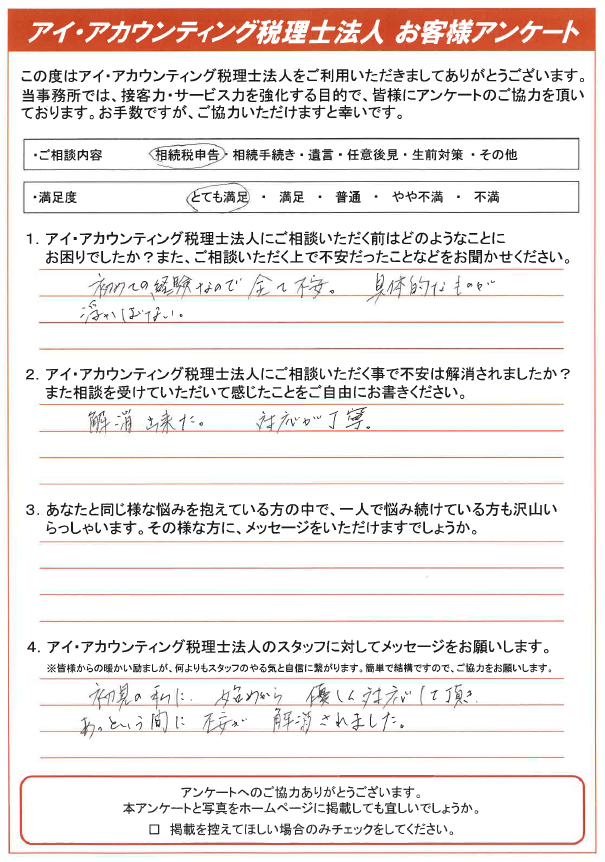 アイ・アカウンティング税理士法人 お客様アンケート
この度はアイ・アカウンティング税理士法人をご利用いただきましてありがとうございます。
当事務所では、接客力・サービス力を強化する目的で、皆様にアンケートのご協力を頂い
ております。お手数ですが、ご協力いただけますと幸いです。
・ご相談内容 相続税申告・相続手続き・遺言・任意後見・生前対策・その他
・満足度 とても満足 ・ 満足 ・ 普通 ・ やや不満 ・ 不満
1. アイ・アカウンティング税理士法人にご相談いただく前はどのようなことに
お困りでしたか?また、ご相談いただく上で不安だったことなどをお聞かせください。
初めての経験なので全て不安。 具体的なものが
浮かばない。
2. アイ・アカウンティング税理士法人にご相談いただく事で不安は解消されましたか?
また相談を受けていただいて感じたことをご自由にお書きください。
解消出来た。 対応が丁寧。
3. あなたと同じ様な悩みを抱えている方の中で、一人で悩み続けている方も沢山い
らっしゃいます。その様な方に、メッセージをいただけますでしょうか。
4. アイ・アカウンティング税理士法人のスタッフに対してメッセージをお願いします。
※皆様からの暖かい励ましが、何よりもスタッフのやる気と自信に繋がります。簡単で結構ですので、ご協力をお願いします。
初見の私に、始めから優しく対応して頂き、
あっという間に不安が解消されました。
アンケートへのご協力ありがとうございます。
本アンケートと写真をホームページに掲載しても宜しいでしょうか。
□ 掲載を控えてほしい場合のみチェックをしてください。